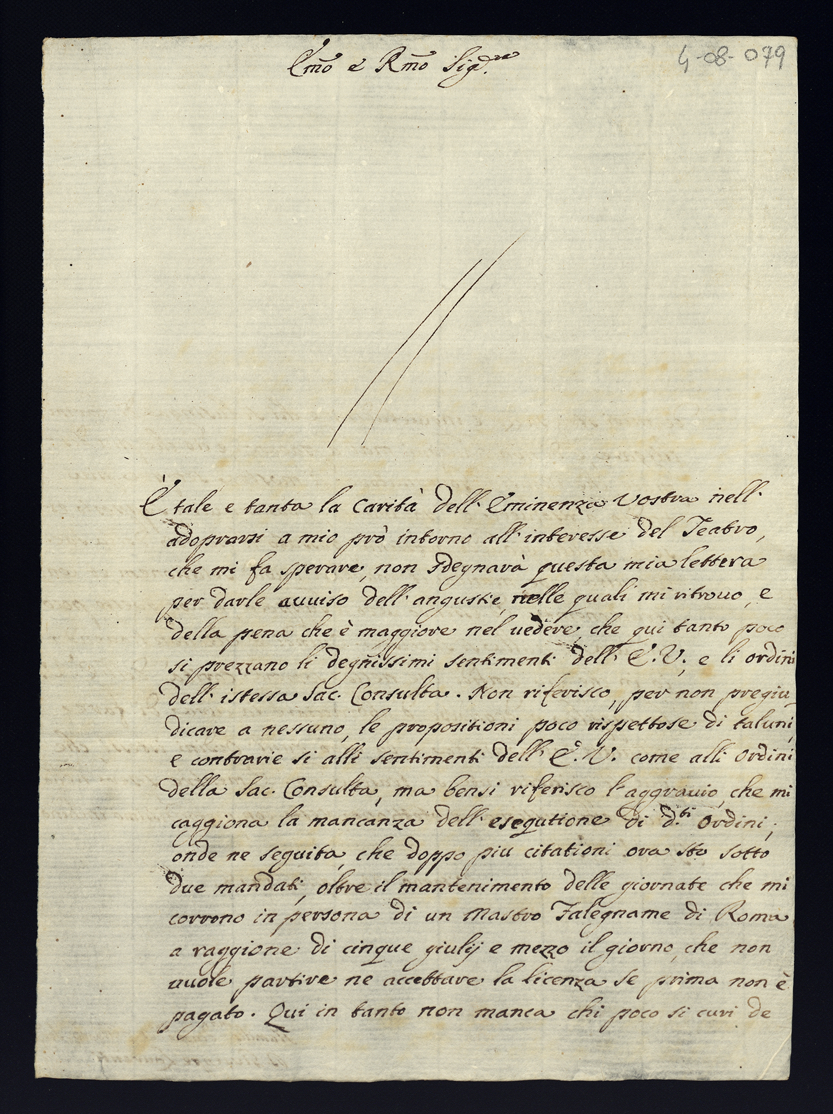 Em̄o e Rm̄o Sig.re
4-08-079
È tale e tanta la Carità dell'Eminenza Vostra nell'
adoprarsi a mio prò intorno all'interesse del Teatro,
che mi fa sperare, non sdegnarà questa mia lettera
per darle auuiso dell'angustie, nelle quali mi ritrouo, e
della pena che è maggiore nel uedere, che qui tanto poco
si prezzano li degnissimi sentimenti dell'E.V., e li ordini
dell'istessa Sac. Consulta. Non riferisco, per non pregiu-
dicare a nessuno, le propositioni poco rispettose di taluni,
e contrarie si alli sentimenti dell'E.V. come alli Ordini
della Sac. Consulta, ma bensi riferisco l'aggrauio, che mi
caggiona la mancanza dell'esegutione di d.ti Ordini,
onde ne seguita, che doppo piu citationi ora sto sotto
due mandati, oltre il mantenimento delle giornate che mi
corrono in persona di un Mastro Falegname di Roma
a raggione di cinque giulij e mezzo il giorno, che non
uuole partire ne accettare la licenza se prima non è
pagato. Qui in tanto non manca chi poco si curi de